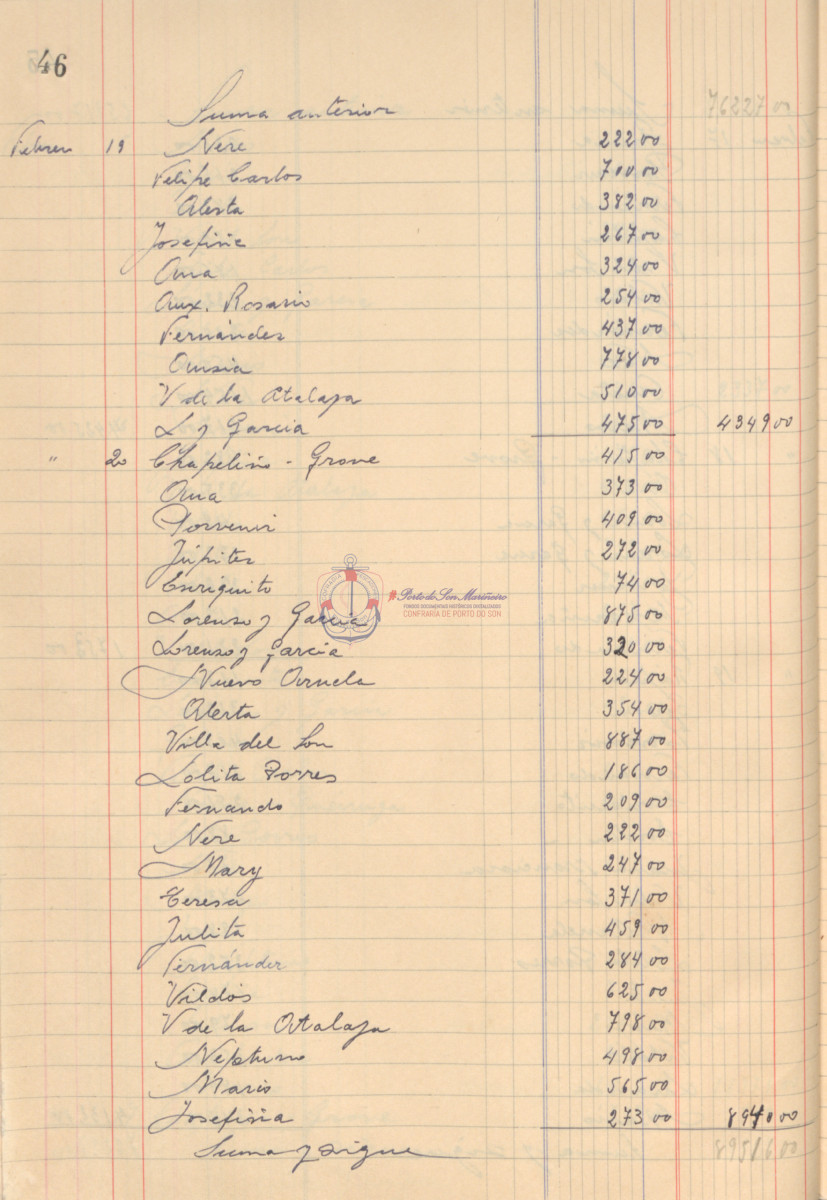 46
Suma anterior 76227 00
Febrero 19 Nere 222 00
Felipe Carlos 700 00
Alerta 382 00
Josefiña 267 00
Ama 324 00
Aux. Rosario 254 00
Fernández 437 00
778 00
V de la Atalaya 510 00
L y Garcia 475 00 4349 00
" 20 Chapeliño - Grove 415 00
Ama 373 00
Porvenir 409 00
Júpiter 272 00
Enriquito 74 00
Lorenso y Garcia 875 00
Lorenso y Garcia 320 00
Nuevo 224 00
Alerta 354 00
Villa del Son 887 00
Lolita Porres 186 00
Fernando 209 00
Nere 222 00
Mary 247 00
Teresa 371 00
Julita 459 00
Fernández 284 00
Vildós 625 00
V de la Atalaya 798 00
Neptuno 498 00
Mario 565 00
Josefiña 273 00 8940 00
Suma y sigue 89516 00
CONFRARÍA PESCADORES
#Porto do Son Mariñeiro
FONDOS DOCUMENTAIS HISTÓRICOS DIXITALIZADOS
CONFRARÍA DE PORTO DO SON